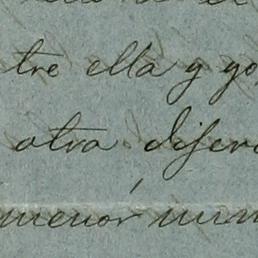 tre ella y yo
otra difer
menor num